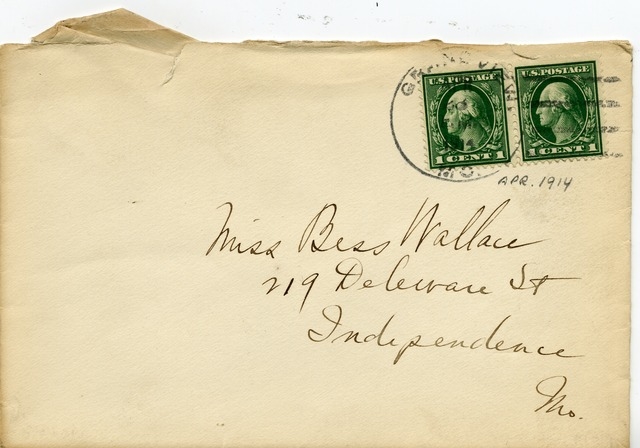 U.S. POSTAGE U.S. POSTAGE
1 CENT 1 1 CENT 1
MO.
APR. 1914
Miss Bess Wallace
219 Deleware St
Independence
Mo.